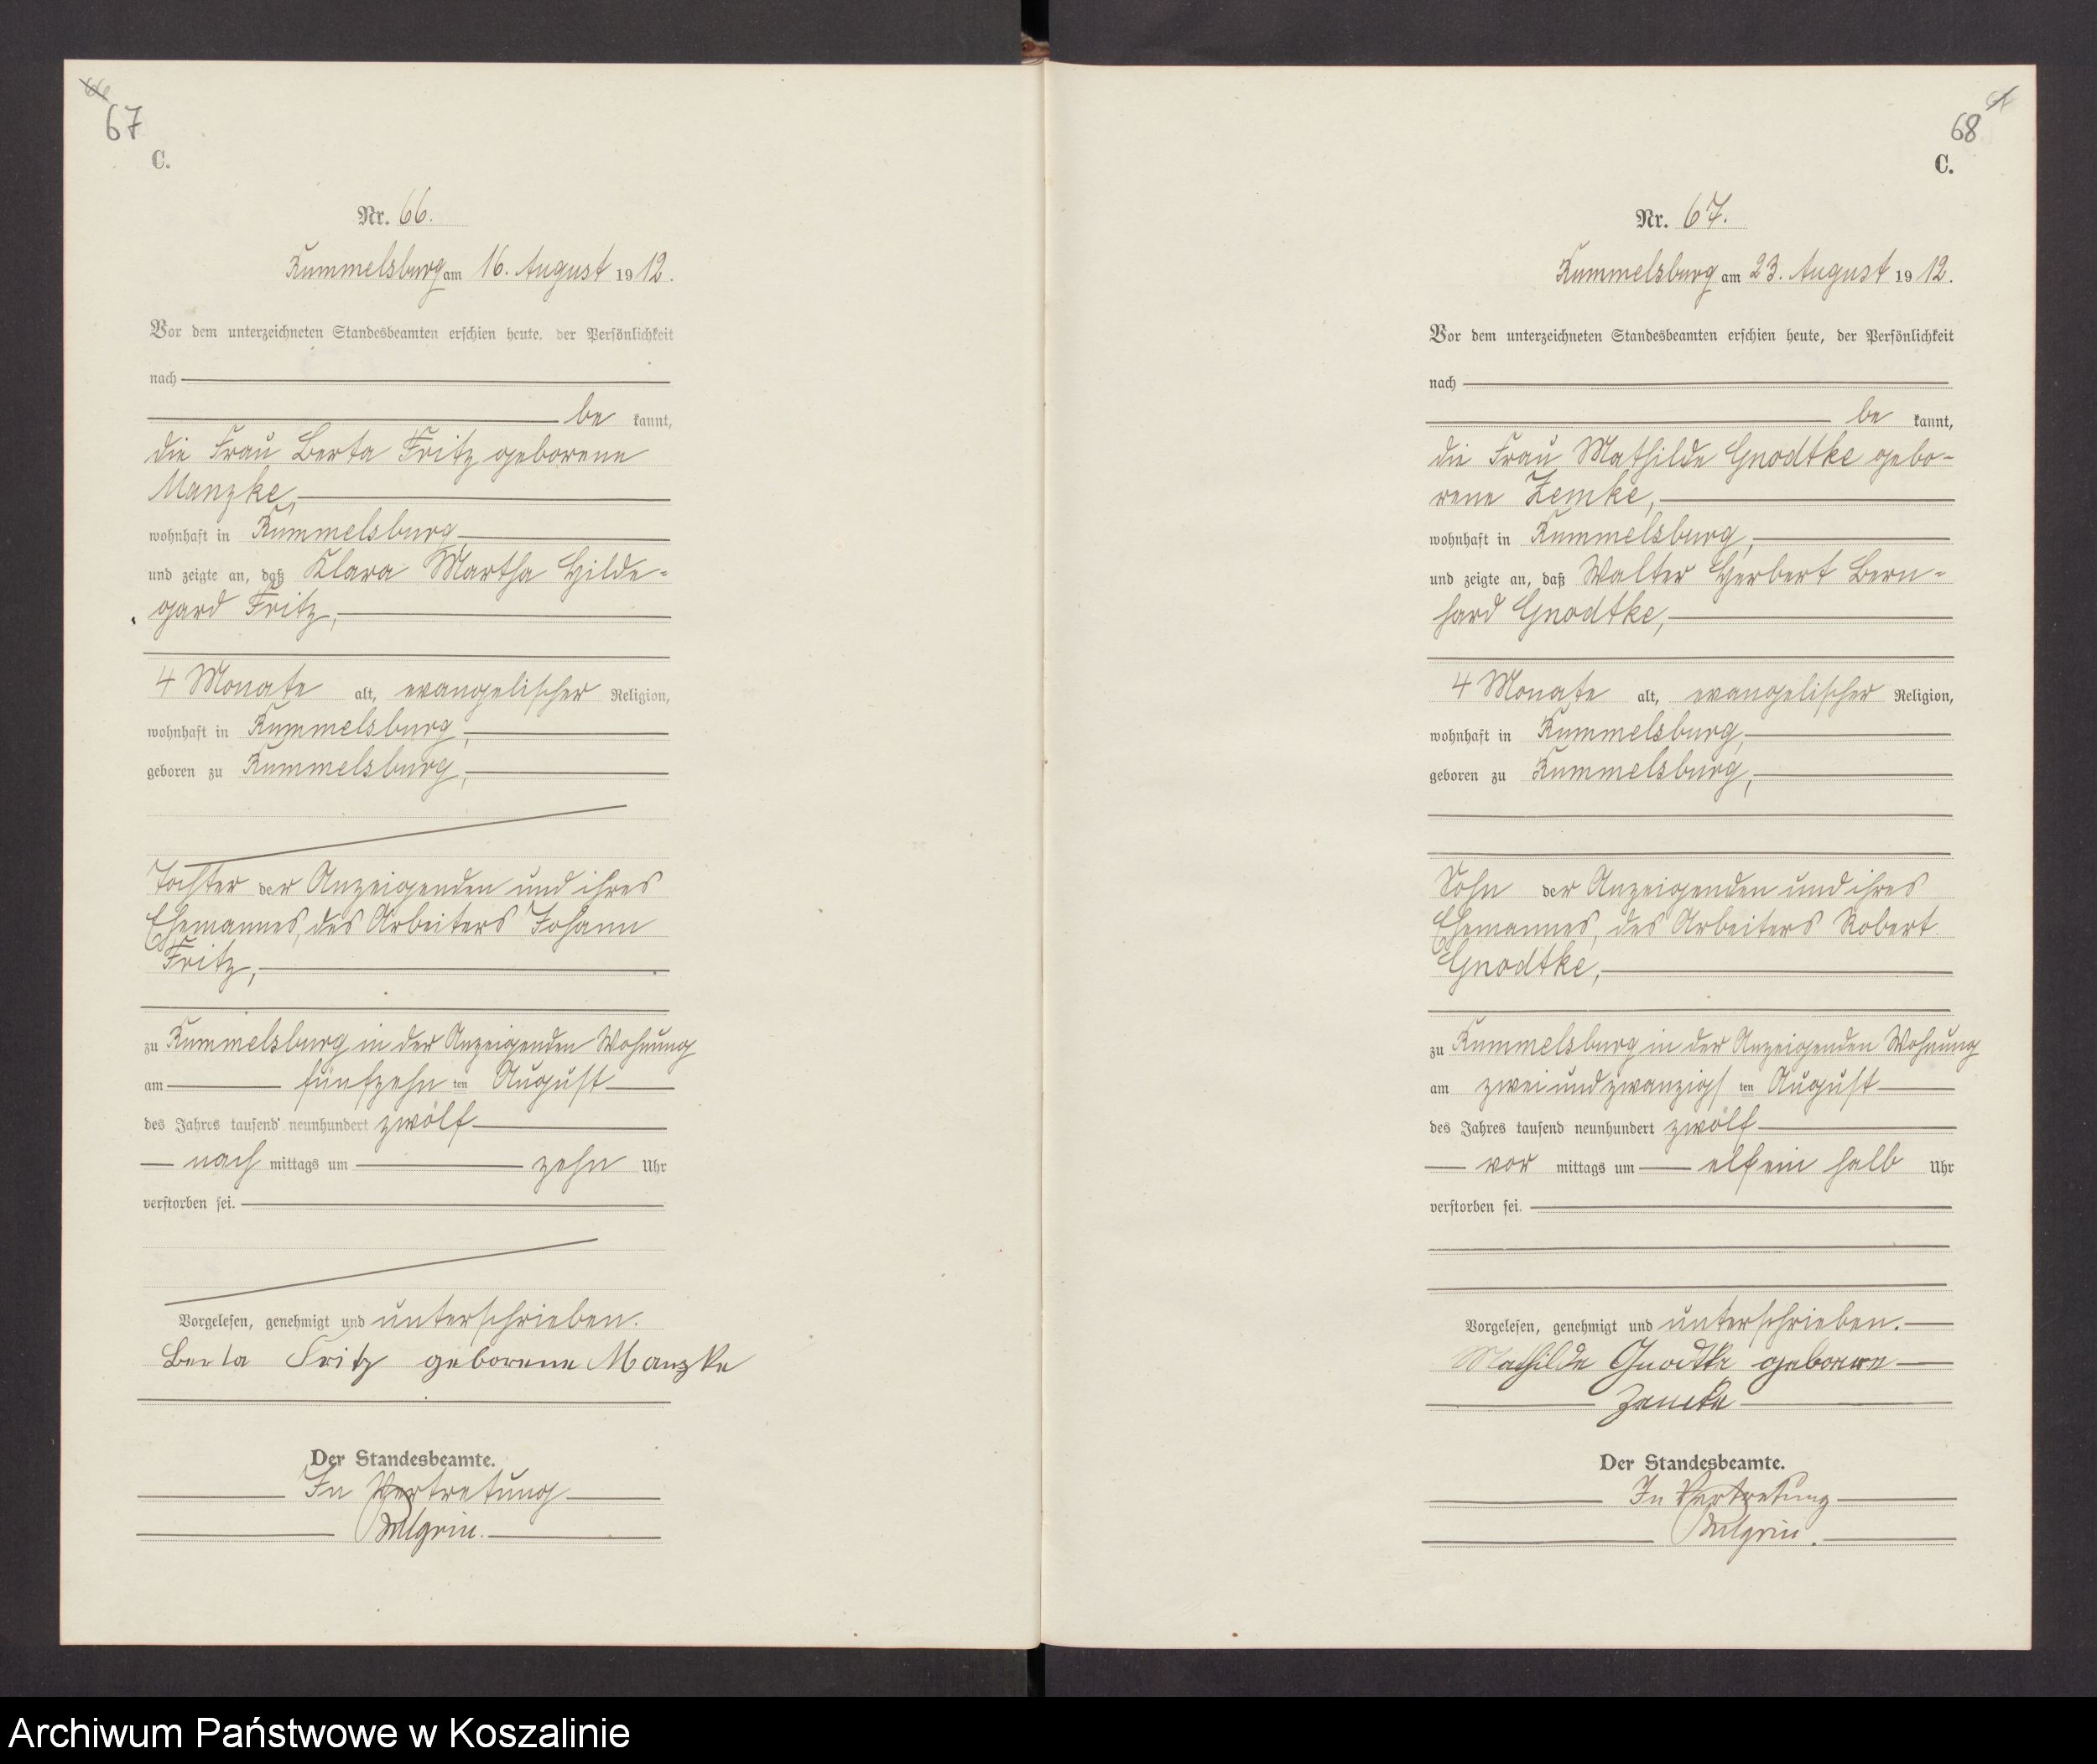 67
C.
Nr. 66.
Rummelsburg am 16. August 1912.
Vor dem unterzeichneten Standesbeamten erschien heute, der Persönlichkeit
nach
be kannt,
die Frau Berta Fritz geborene
Manzke,
wohnhaft in Rummelsburg
und zeigte an, daß Klara Martha Hilde-
gard Fritz,
4 Monate alt, evangelischer Religion,
wohnhaft in Rummelsburg,
geboren zu Rummelsburg,
Tochter der Anzeigenden und ihres
Ehemannes, des Arbeiters Johann
Fritz,
zu Rummelsburg in der Anzeigenden Wohnung
am fünfzehn ten August
des Jahres tausend neunhundert zwölf
nach mittags um zehn Uhr
verstorben sei.
Vorgelesen, genehmigt und unterschrieben.
Berta Fritz geborene Manzke
Der Standesbeamte.
In Vertretung
68
C.
Nr. 67.
Rummelsburg am 23. August 1912.
Vor dem unterzeichneten Standesbeamten erschien heute, der Persönlichkeit
nach
be kannt,
die Frau Mathilde Gnodtke gebo-
rene Zemke,
wohnhaft in Rummelsburg,
und zeigte an, daß Walter Herbert Bern-
hard Gnodtke,
4 Monate alt, evangelischer Religion,
wohnhaft in Rummelsburg,
geboren zu Rummelsburg,
Sohn der Anzeigenden und ihres
Ehemannes, des Arbeiters Robert
Gnodtke,
zu Rummelsburg in der Anzeigenden Wohnung
am zweiundzwanzigs ten August
des Jahres tausend neunhundert zwölf
vor mittags um elfein halb Uhr
verstorben sei.
Vorgelesen, genehmigt und unterschrieben.
Mathilde Gnodtke geborene
Der Standesbeamte.
In Vertretung
Archiwum Państwowe w Koszalinie